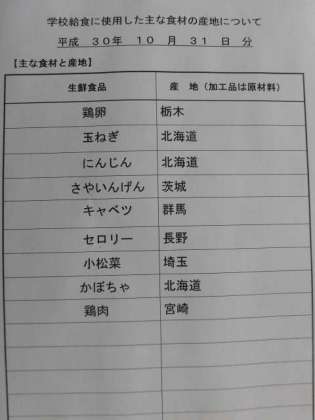 学校給食に使用した主な食材の産地について
平成 30年 10 月 31 日 分
【主な食材と産地】
生鮮食品 産 地（加工品は原材料）
鶏卵 栃木
玉ねぎ 北海道
にんじん 北海道
さやいんげん 茨城
キャベツ 群馬
セロリー 長野
小松菜 埼玉
かぼちゃ 北海道
鶏肉 宮崎